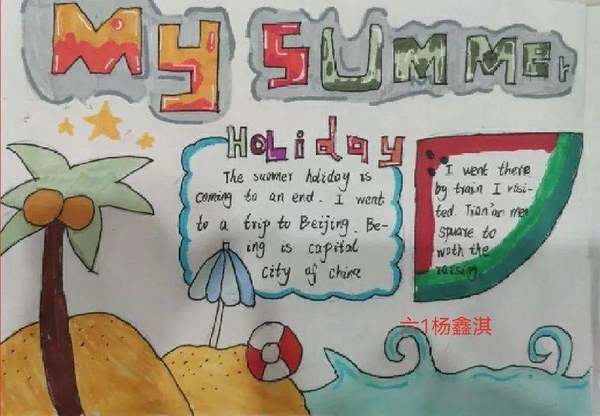 My SUMMer
HoLiday
The summer holiday is
coming to an end. I went
to a trip to Beijing. Be-
ing is capital
city of china
I went there
by train I visi-
ted. Tian'an men
square to
wath the
raising.
六1杨鑫淇